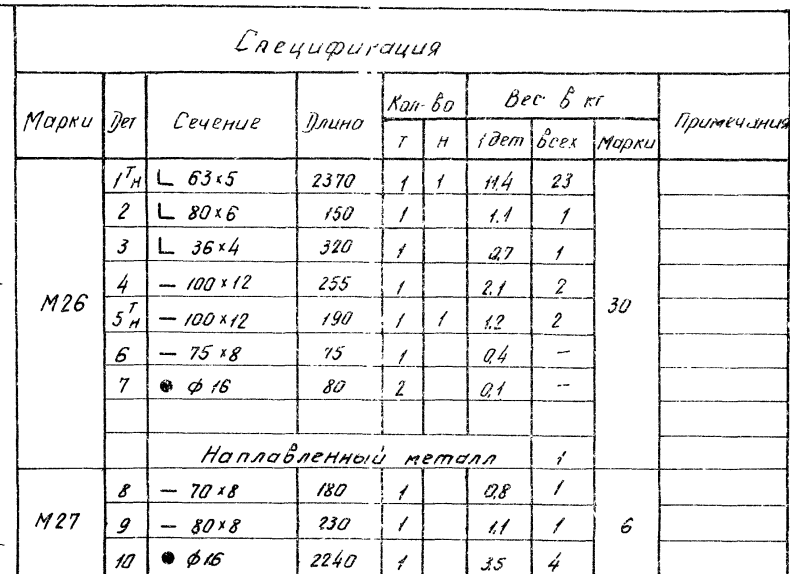 Спецификация
Марки Дет Сечение Длина Кол-во Вес в кг Примечания
т н 1 дет всех Марки
М26 30
1 т н L 63×5 2370 1 1 11.4 23
2 L 80×6 150 1 1.1 1
3 L 36×4 320 1 0,7 1
4 — 100×12 255 1 2.1 2
5 т н — 100×12 190 1 1 1.2 2
6 — 75×8 75 1 0,4 —
7 ● ф 16 80 2 0,1 —
Наплавленный металл 1
М27 6
8 — 70×8 180 1 0,8 1
9 — 80×8 230 1 1.1 1
10 ● ф 16 2240 1 3.5 4